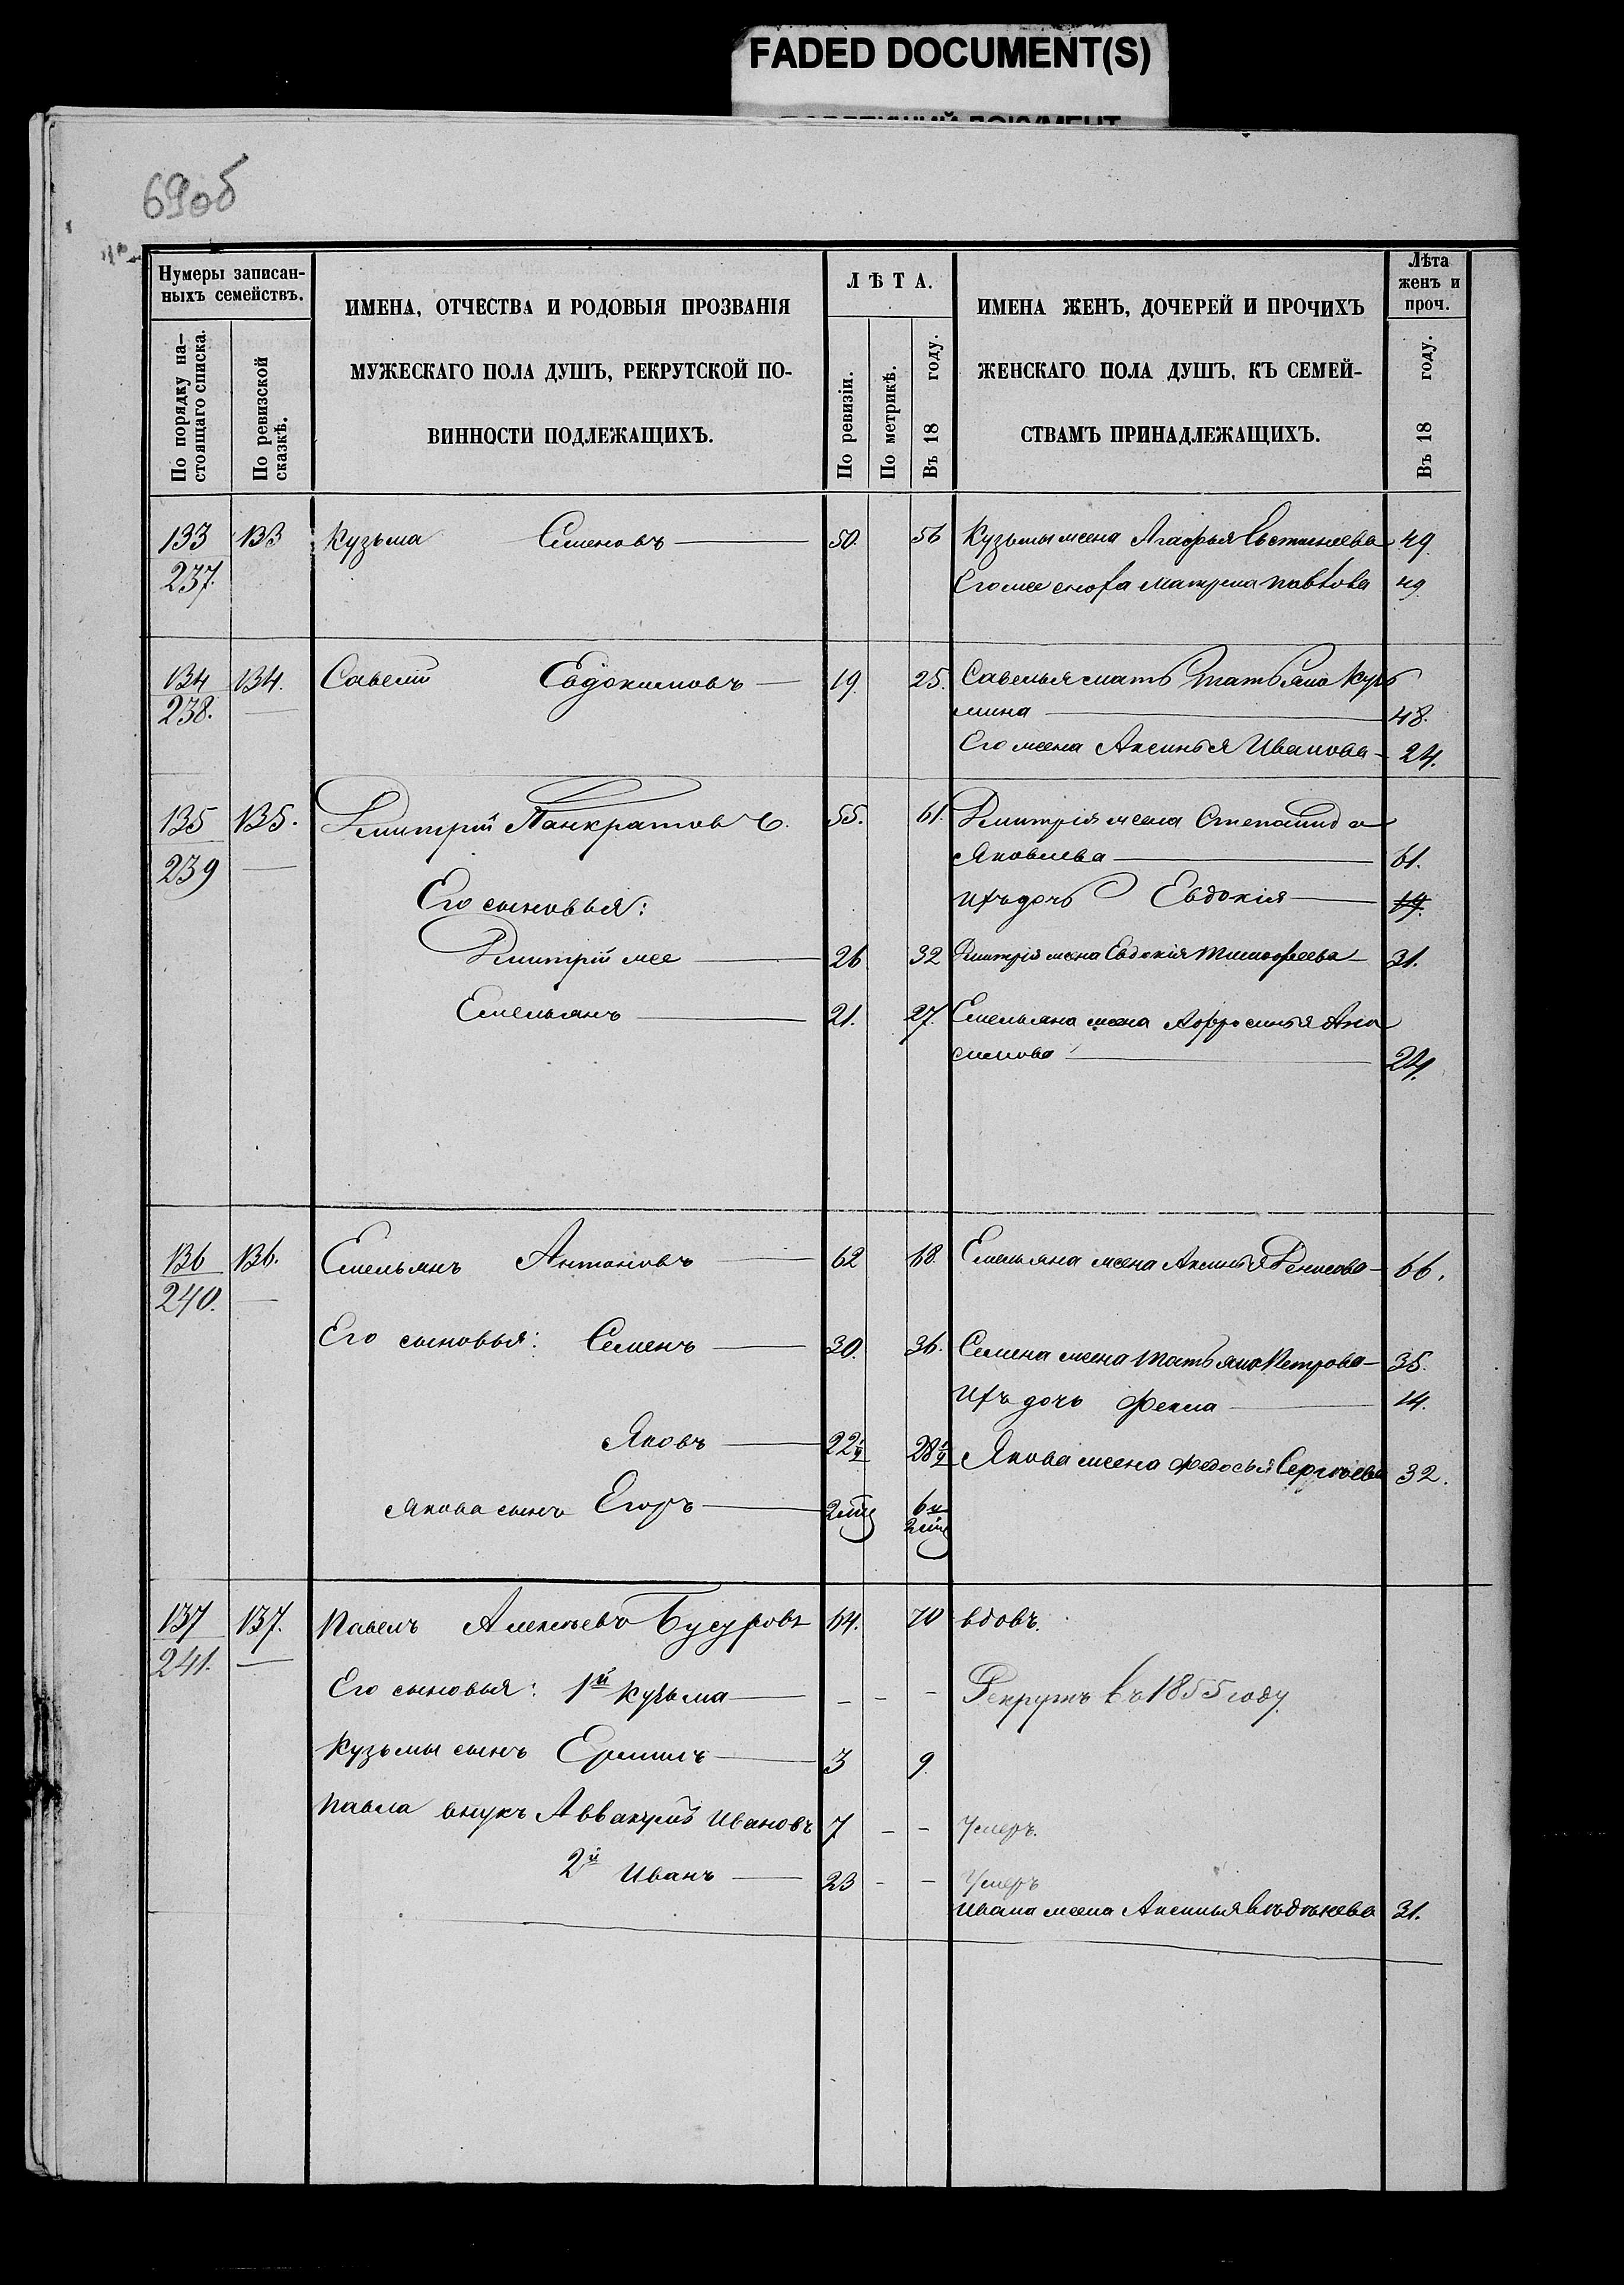 FADED DOCUMENT(S)
69об
Нумеры записан-
ныхъ семействъ.
По порядку на-
стоящаго списка.
По ревизской
сказкѣ.
ИМЕНА, ОТЧЕСТВА И РОДОВЫЯ ПРОЗВАНІЯ
МУЖЕСКАГО ПОЛА ДУШЪ, РЕКРУТСКОЙ ПО-
ВИННОСТИ ПОДЛЕЖАЩИХЪ.
ЛѢТА.
По ревизіи.
По метрикѣ.
Въ 18 году.
ИМЕНА ЖЕНЪ, ДОЧЕРЕЙ И ПРОЧИХЪ
ЖЕНСКАГО ПОЛА ДУШЪ, КЪ СЕМЕЙ-
СТВАМЪ ПРИНАДЛЕЖАЩИХЪ.
Лѣта
женъ и
проч.
Въ 18 году.
133 133 Кузьма Семеновъ 50. 56 Кузьмы жена Агафья 49
237. Матрена 49
134 134. Савелій Евдокимовъ 19. 25. Савелья мать Татьяна Кузь
238. мина 48.
Его жена Аксинья Иванова 24.
135 135. Дмитрій Панкратовъ. 55. 61. Дмитрія жена Степанида
239 Яковлева 61.
Его сыновья: Ихъ дочь Евдокія 19.
Дмитрій же 26 32 Дмитрія жена Евдокія Тимофеева 31.
Емельянъ 21. 27. Емельяна жена Афросинья Ана
симова 24.
136 136. Емельянъ Антоновъ 62 68. Емельяна жена Аксинья Денисова 66.
240.
Его сыновья: Семенъ 30. 36. Семена жена Татьяна Петрова 35.
Ихъ дочь Фекла 14.
Яковъ 22 28 Якова жена Федосья Сергѣева 32.
Якова сынъ Егоръ 2 6 и
2
137 137. Павелъ Алексѣевъ 64. 70 вдовъ.
241.
Его сыновья: 1й Кузьма - - - Рекрутъ въ 1855 году.
Кузьмы сынъ Ермилъ 3 9.
Павла внукъ Аввакумъ Ивановъ 7 - - Умеръ.
2й Иванъ 23 - - Умеръ
Ивана жена Аксинья 31.